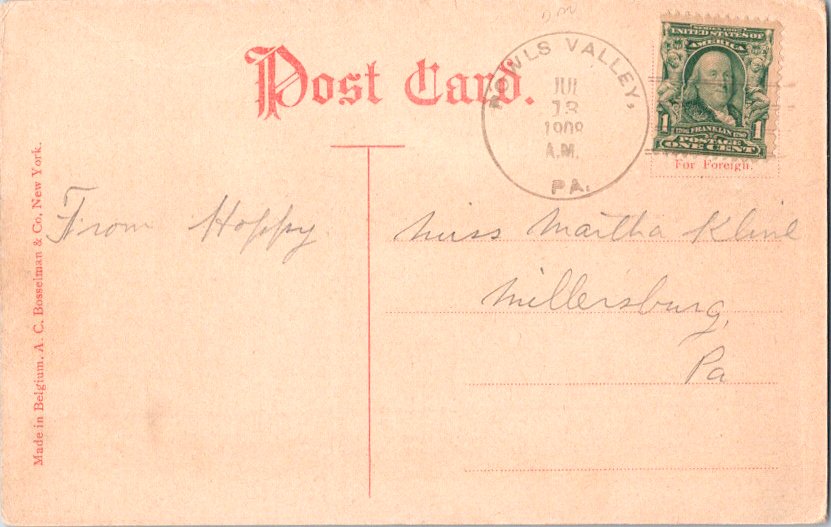 Post Card.
VALLEY,
JUL
13
1908
A.M.
PA.
SERIES 1902
UNITED STATES OF
AMERICA
1 FRANKLIN 1
POSTAGE
ONE CENT
For Foreign.
From Hoppy
Miss Martha Kline
Millersburg,
Pa
Made in Belgium. A. C. Bosselman & Co. New York.